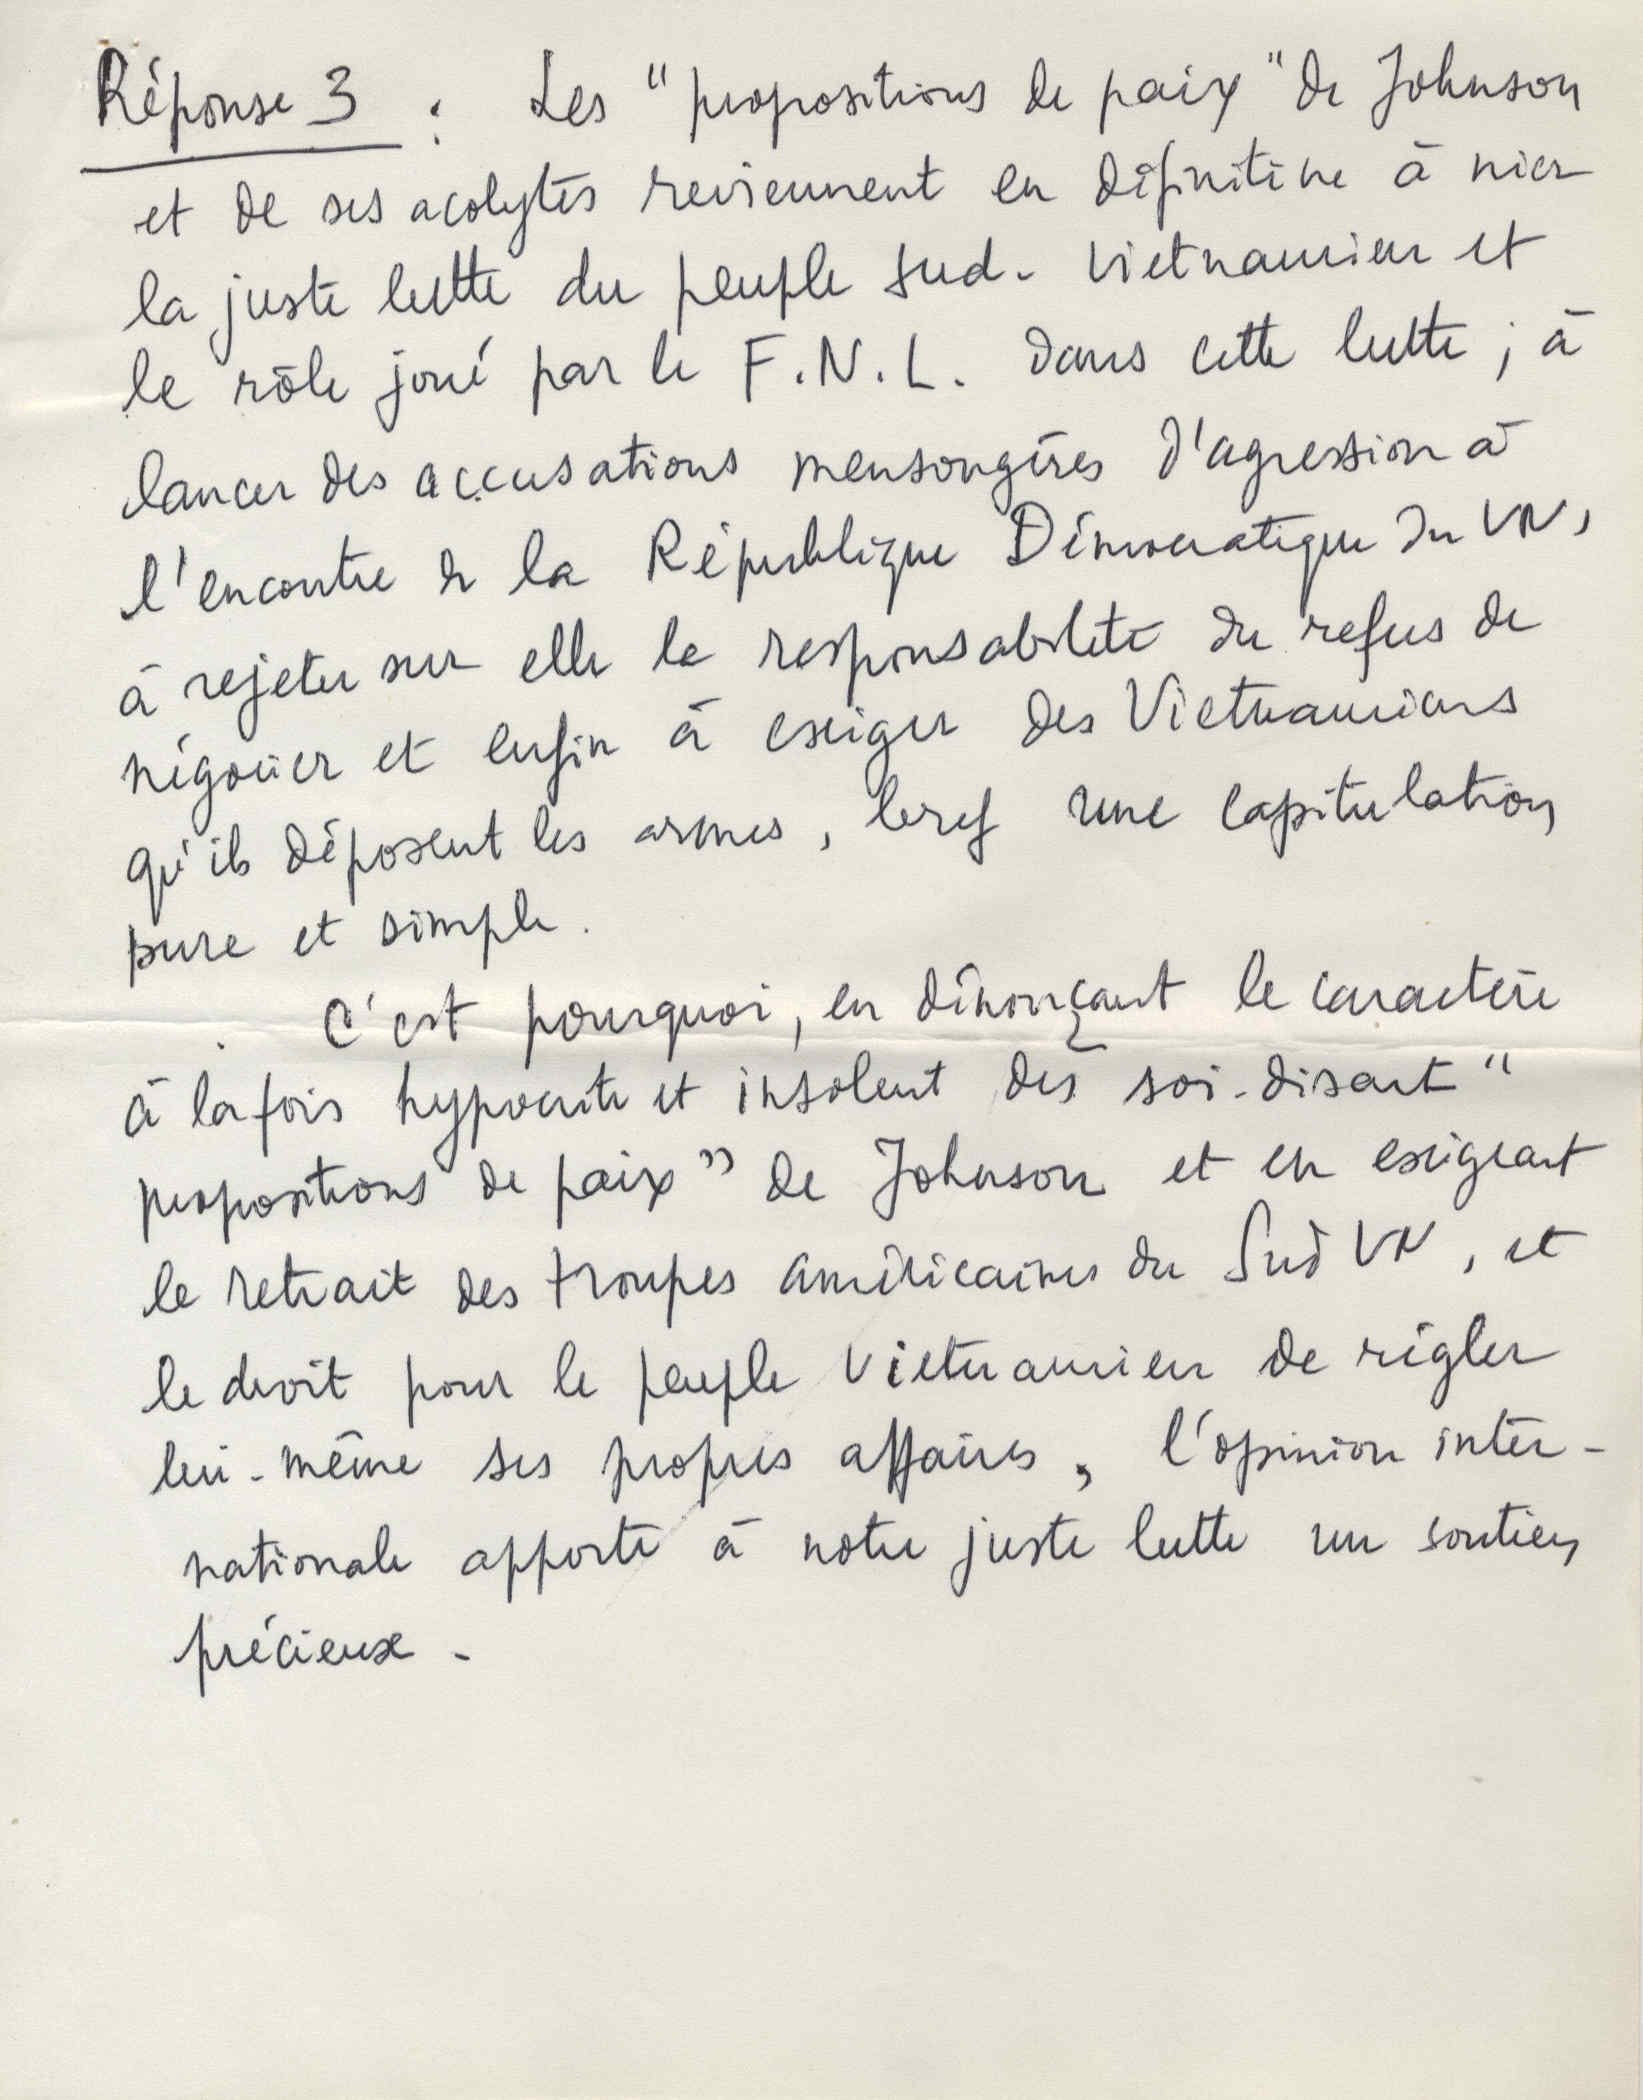 Réponse 3 : Les "propositions de paix" de Johnson
et de ses acolytes reviennent en définitive à nier
la juste lutte du peuple sud-vietnamien et
le rôle joué par le F.N.L. dans cette lutte ; à
lancer des accusations mensongères d'agression à
l'encontre de la République Démocratique du VN,
à rejeter sur elle la responsabilité du refus de
négocier et enfin à exiger des Vietnamiens
qu'ils déposent les armes, bref une capitulation
pure et simple.
C'est pourquoi, en dénonçant le caractère
à la fois hypocrite et insolent des soi-disant "
propositions de paix" de Johnson et en exigeant
le retrait des troupes américaines du Sud VN, et
le droit pour le peuple vietnamien de régler
lui-même ses propres affaires, l'opinion inter-
nationale apporte à notre juste lutte un soutien
précieux -